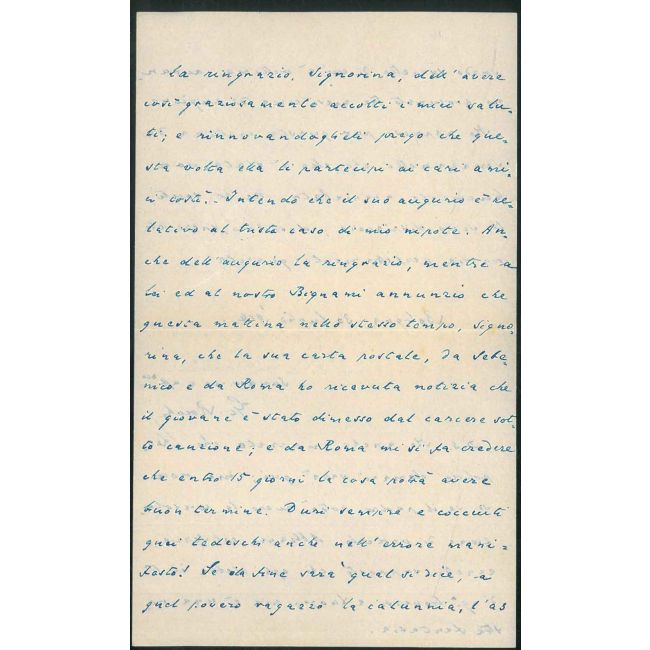 La ringrazio, Signorina, dell'avere
così graziosamente accolti i miei salu-
ti; e rinnovandoglieli prego che que-
sta volta ella li partecipi ai cari ami-
ci costì. Intendo che il suo augurio è re-
lativo al triste caso di mio nipote. An-
che dell'augurio la ringrazio, mentre a
lei ed al nostro Bignami annunzio che
questa mattina nello stesso tempo, Signo-
rina, che la sua carta postale, da Sebe-
nico e da Roma ho ricevuta notizia che
il giovane è stato dimesso dal carcere sot-
to cauzione; e da Roma mi si fa credere
che entro 15 giorni la cosa potrà avere
buon termine. Duri sempre e cocciuti
quei tedeschi anche nell'errore mani-
festo! Se da fine sarà qual si dice, a
quel povero ragazzo la calunnia, l'as